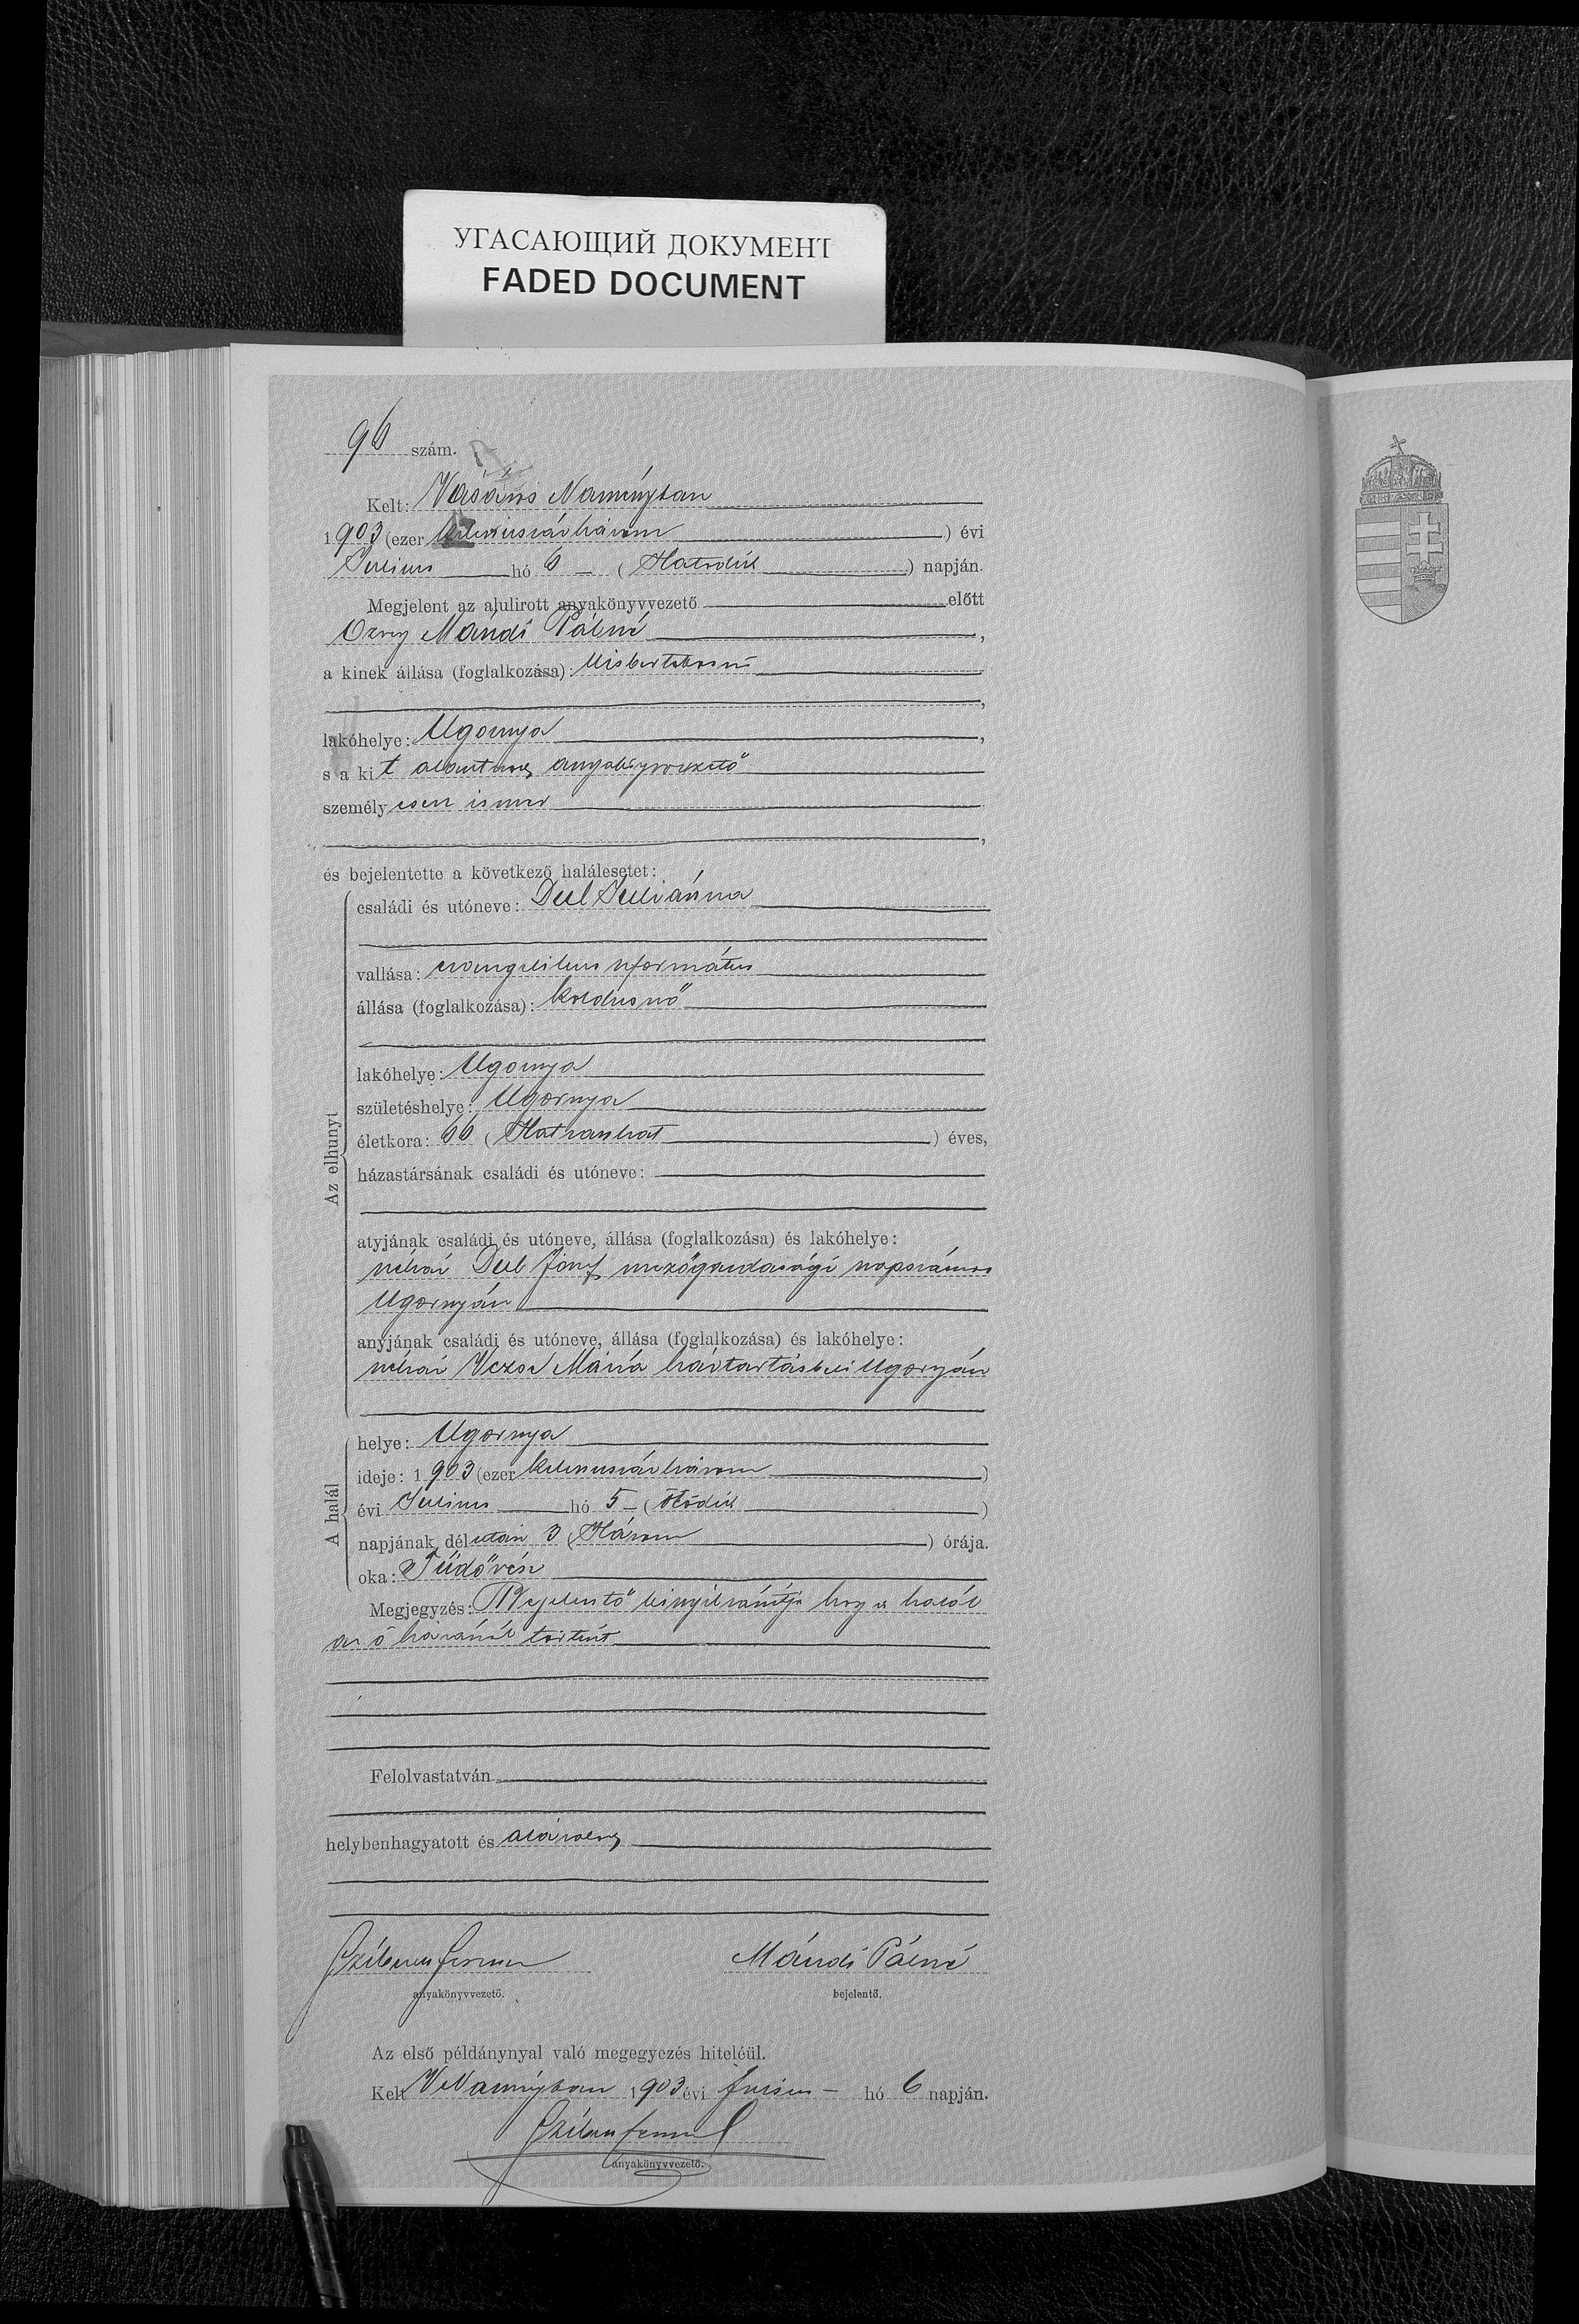 УГАСАЮЩИЙ ДОКУМЕНТ
FADED DOCUMENT
96 szám.
Kelt: Vásáros Naményban
1903 (ezer kilenczszázhárom) évi
Julius hó 6 – (Hatodik) napján.
Megjelent az alulirott anyakönyvvezető előtt
Özvegy Mándi Pálné,
a kinek állása (foglalkozása): kisbirtokosnő
lakóhelye: Ugornya,
s a kit anyakönyvvezető
személyesen ismer,
és bejelentette a következő halálesetet:
Az elhunyt
családi és utóneve: Deel Juliánna
vallása: evangelikus református
állása (foglalkozása): koldusnő
lakóhelye: Ugornya
születéshelye: Ugornya
életkora: 66 (Hatvanhat) éves,
házastársának családi és utóneve:
atyjának családi és utóneve, állása (foglalkozása) és lakóhelye:
néhai Deel József mezőgazdasági napszámos
Ugornyán
anyjának családi és utóneve, állása (foglalkozása) és lakóhelye:
néhai Mária háztartásbeli Ugornyán
A halál
helye: Ugornya
ideje: 1903 (ezer kilenczszázhárom)
évi Julius hó 5 – (ötödik)
napjának délután 3 (Három) órája.
oka: Tüdővész
Megjegyzés: Bejelentő kinyilvánítja hogy a halál
az ő házánál történt
Felolvastatván
helybenhagyatott és aláíratott
anyakönyvvezető.
Mándi Pálné
bejelentő.
Az első példánynyal való megegyezés hiteléül.
Kelt VNaményban 1903 évi Julius – hó 6 napján.
anyakönyvvezető.